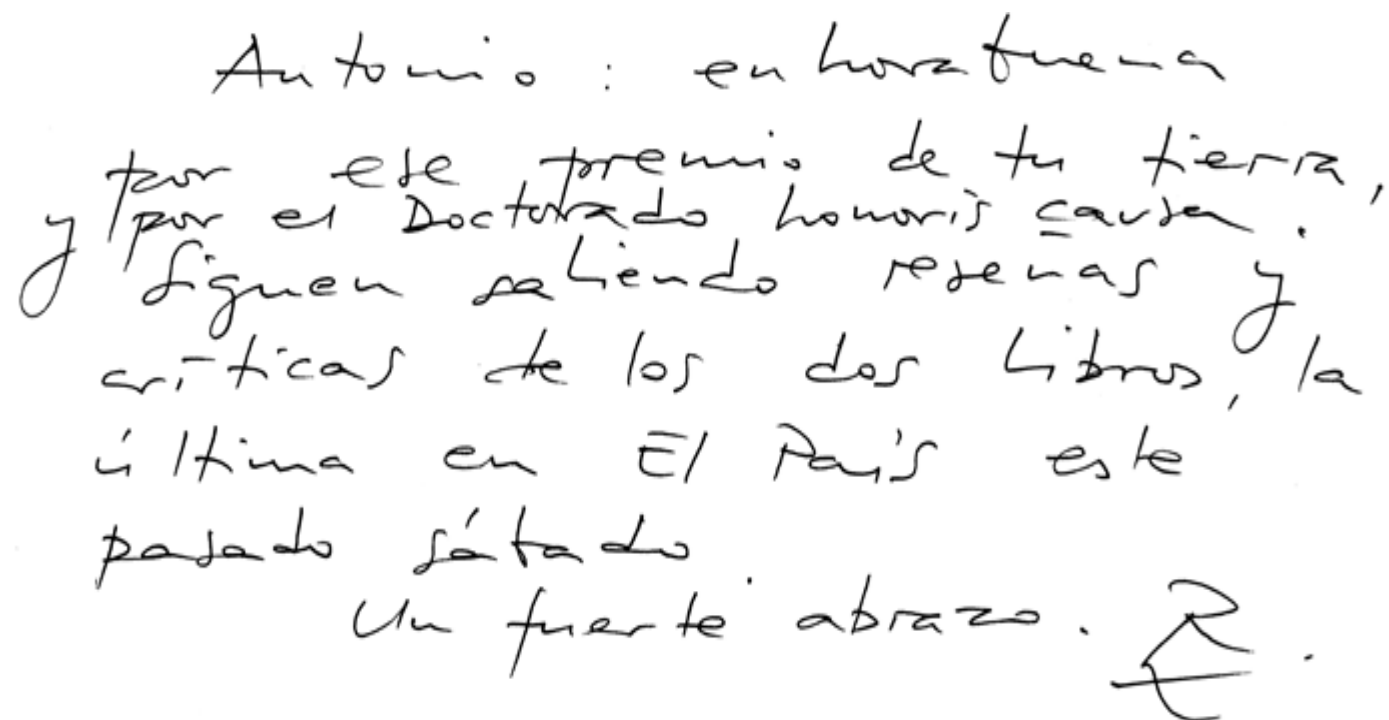 Antonio: enhorabuena
por ese premio de tu tierra,
y por el Doctorado honoris causa.
Siguen saliendo reseñas y
críticas de los dos libros, la
última en El País este
pasado sábado.
Un fuerte abrazo. R.